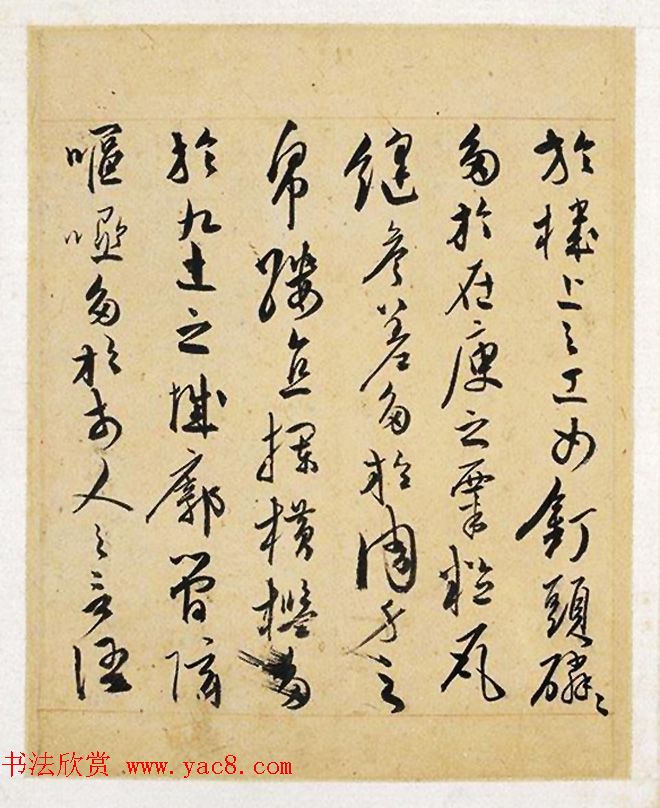 於機上之工女釘頭磷〻
多於在庾之粟粒瓦
縫參差多於周身之
帛縷直欄橫檻多
於九土之城郭管弦
嘔啞多於市人之言語
书法欣赏 www.yac8.com